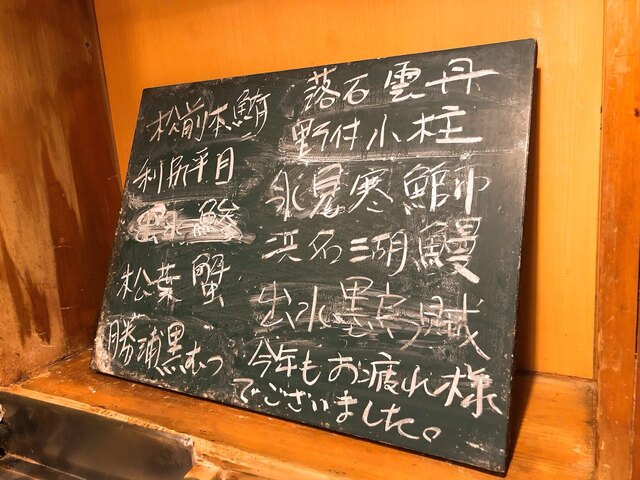 松前本鮪
利尻平目
出水鯵
松葉蟹
勝浦黒むつ
落石雲丹
野付小柱
氷見寒鰤
浜名湖鰻
出水墨烏賊
今年もお疲れ様
でございました。